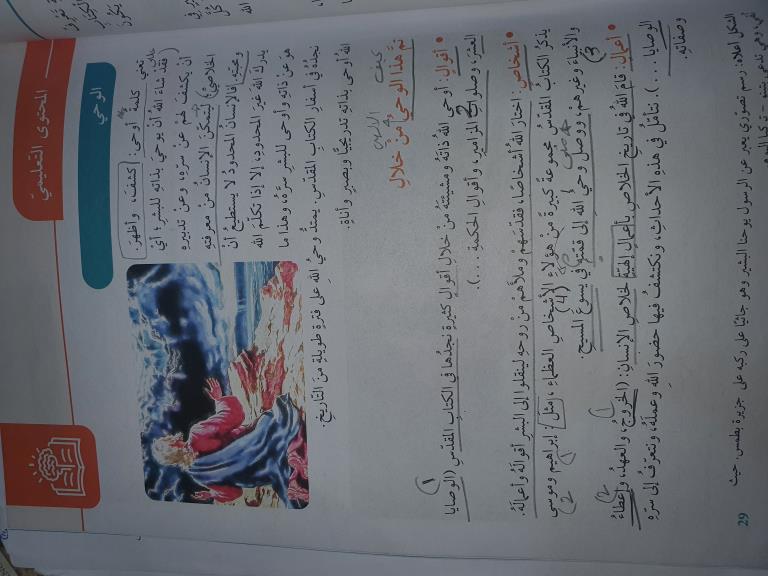 المحتوى التعليمي
الوحي
تعني كلمة أوحى: كشف، وأظهر.
فقد شاءَ اللهُ أن يوحيَ بذاتِهِ للبشرِ؛ أي
أن يكشفَ لهم عن سرِّهِ، وعن تدبيرِهِ
الخلاصيِّ، ليتمكّنَ الإنسانُ من معرفتِهِ
ومحبّتِهِ. فالإنسانُ المحدودُ لا يستطيعُ أن
يدركَ اللهَ غيرَ المحدودِ، إلا إذا تكلّمَ الله
هو عن ذاتِهِ وأوحى للبشرِ سرَّهُ، وهذا ما
نجدُهُ في أسفارِ الكتابِ المقدّسِ. يمتدُّ وحيُ اللهِ على فترةٍ طويلةٍ منَ التّاريخِ.
اللهُ أوحى بذاتِهِ تدريجيًّا وبصبرٍ وأناةٍ.
تمَّ هذا الوحيُ منْ خلالِ
• أقوالٍ: أوحى اللهُ ذاتَهُ ومشيئتَهُ منْ خلالِ أقوالٍ كثيرةٍ نجدُها في الكتابِ المقدّسِ (الوصايا
العشرَ، وصلواتِ المزاميرِ، وأقوالِ الحكمةِ ...).
• أشخاصٍ: اختارَ اللهُ أشخاصًا، فقدّسَهمْ وملأَهمْ منْ روحِهِ لينقلوا إلى البشرِ أقوالَهُ وأعمالَهُ.
يذكرُ الكتابُ المقدّسُ مجموعةً كبيرةً منْ هؤلاءِ الأشخاصِ العظماءِ، مثلَ: إبراهيمَ وموسى
والأنبياءَ وغيرِهمْ، ووصلَ وحيُ اللهِ إلى قمّتِهِ في يسوعَ المسيحِ.
• أعمالٍ: قامَ اللهُ في تاريخِ الخلاصِ بأعمالٍ إلهيّةٍ لخلاصِ الإنسانِ: (الخروجُ، والعهدُ، وإعطاءُ
الوصايا ...). نتأمّلُ في هذهِ الأحداثِ، ونكتشفُ فيها حضورَ اللهِ وعملَهُ، ونتعرّفُ إلى سرِّهِ
وصفاتِهِ.
الشكل أعلاه: رسم تصوّري يعبر عن الرسول يوحنا البشير وهو جاثيًا على ركبه على جزيرة بطمس حيث
29